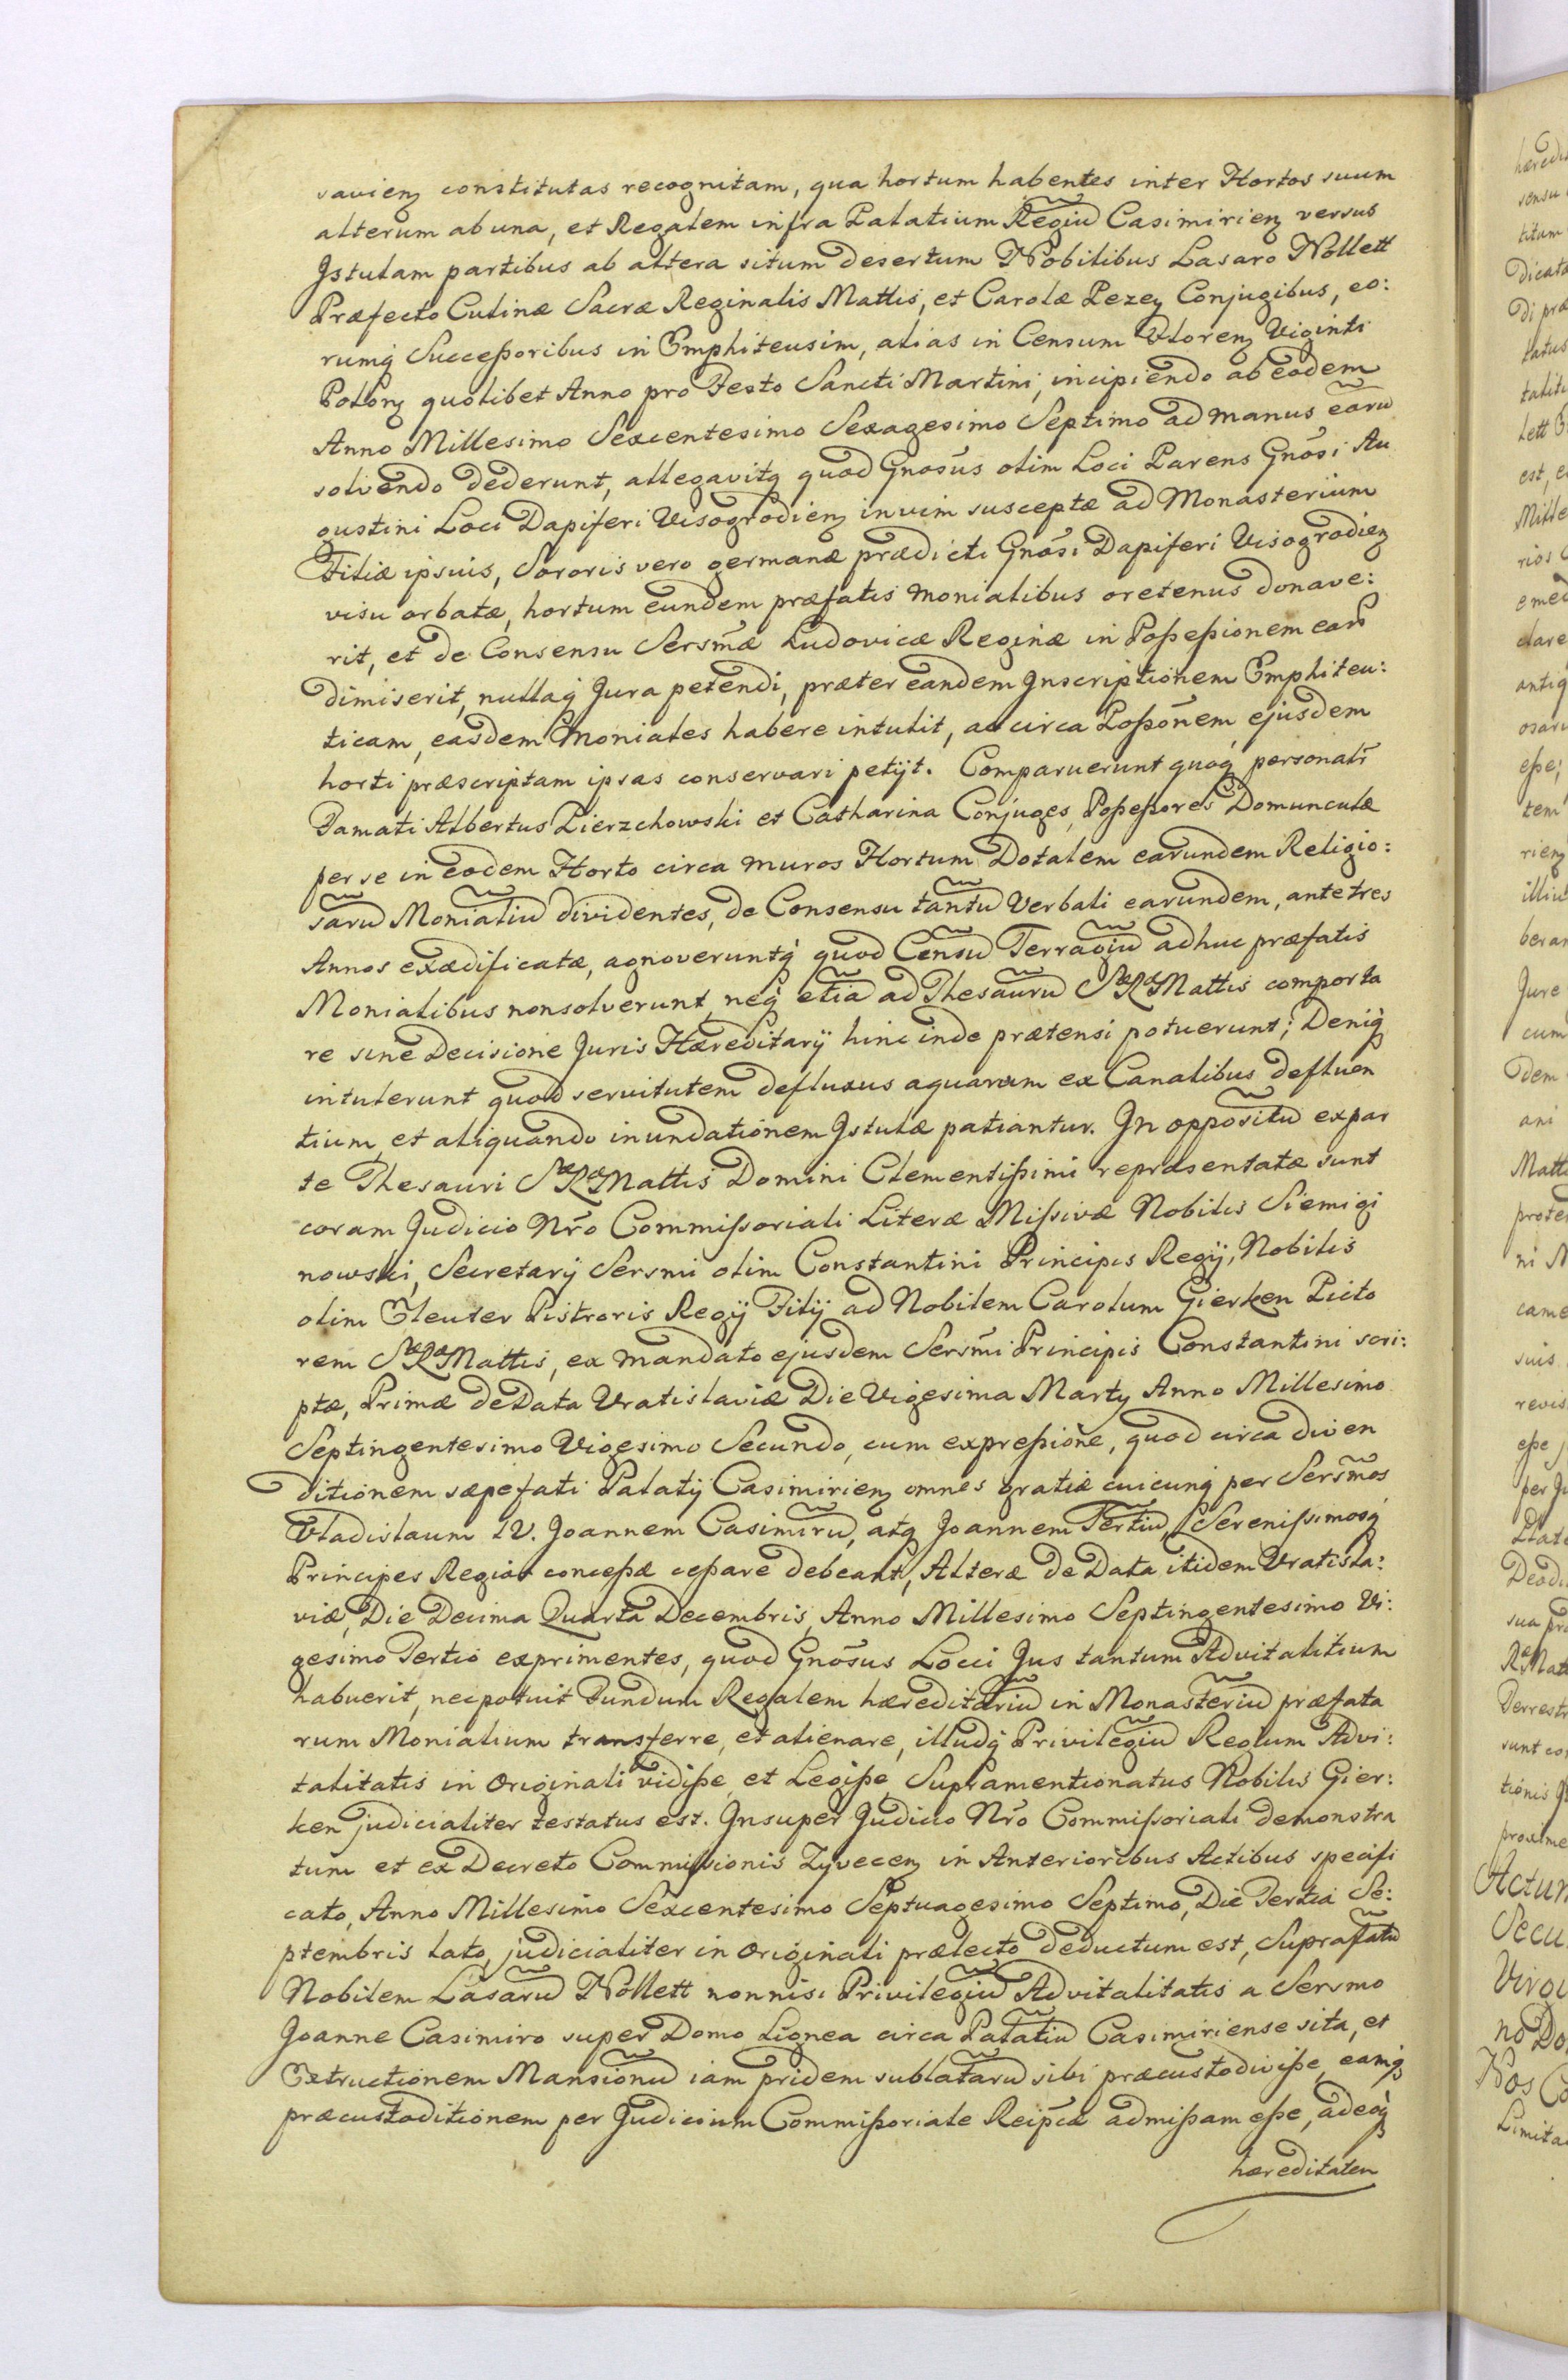 savieng constitutas recognitam, qua hortum habentes inter Hortos suum
alterum ab una, et Regalem infra Palatium Regiũ Casimirieng versus
Istulam partibus ab altera situm desertum Nobilibus Lasaro Nollett
Præfecto Culinæ Sacræ Reginalis Mattis, et Carolæ Pezey Conjugibus, eo:
rumq Succeßoribus in Emphiteusim, alias in Censum Floreng Viginti
Polong quolibet Anno pro Festo Sancti Martini, incipiendo ab eodem
Anno Millesimo Sexcentesimo Sexagesimo Septimo ad manus earũ
solvendo dederunt, allegavitq quod Gnosus olim Loci Parens Gnosi Au
gustini Loci Dapiferi Visogrodieng in vim susceptæ ad Monasterium
Filiæ ipsuis, Sororis vero germanæ prædicti Gnosi Dapiferi Visogrodieng
visu orbatæ, hortum eundem præfatis monialibus oretenus donave:
rit, et de Consensu Sersmæ Ludovicæ Reginæ in Poßeßionem earũ
dimiserit, nullaq Jura petendi, præter eandem Inscriptionem Emphiteu:
ticam, easdem Moniales habere intulit, ac circa Poßonem ejusdem
horti præscriptam ipsas conservari petijt. Comparuerunt quoq personalr
Famati Albertus Pierzchowski et Catharina Conjuges, Poßeßores Domunculæ
per se in eodem Horto circa muros Hortum Dotalem earundem Religio:
sarũ Monialiũ dividentes, de Consensu tantũ Verbali earundem, ante tres
Annos exædificatæ, agnoveruntq quod Censũ Terragiũ adhuc præfatis
Monialibus non solverunt, neq etiã ad Thesaurũ SæRæMattis comporta
re sine Decisione Juris Hæreditarij hinc inde prætensi potuerunt; Deniq
intulerunt quod servitutem defluxus aquarum ex Canalibus defluen
tium, et aliquando inundationem Istulæ patiantur. In oppositũ ex par
te Thesauri SæRæMattis Domini Clementißimi repræsentatæ sunt
coram Judicio Nro Commißoriali Literæ Mißivæ Nobilis Siemigi
nowski, Secretarij Sersmi olim Constantini Principis Regij, Nobilis
olim Eleuter Pistroris Regij Filij ad Nobilem Carolum Gierken Picto
rem SæRæMattis, ex mandato ejusdem Sersmi Principis Constantini scri:
ptæ, Primæ de Data Vratislaviæ Die Vigesima Martij Anno Millesimo
Septingentesimo Vigesimo Secundo, cum expreßione, quod circa diven
ditionem sæpefati Palatij Casimirieng omnes gratiæ cuicunq per Sersmos
Vladislaum IV. Joannem Casimirũ, atq Joannem Tertiũ, Serenißimosq
Principes Regios conceßæ ceßare debeant, Alteræ de Data itidem Vratisla:
viæ, Die Decima Quarta Decembris, Anno Millesimo Septingentesimo Vi:
gesimo Tertio exprimentes, quod Gnosus Locci Jus tantum Advitalitium
habuerit, nec potuit Fundum Regalem hæreditariũ in Monasteriũ præfata
rum Monialium transferre, et alienare, illudq Privilegiũ Regium Advi:
talitatis in Originali vidiße, et Legiße, Supramentionatus Nobilis Gier:
ken judicialiter testatus est. Insuper Judicio Nro Commißoriali demonstra
tum et ex Decreto Commißionis Zyveceng in Anterioribus Actibus specifi
cato, Anno Millesimo Sexcentesimo Septuagesimo Septimo, Die Tertia Se:
ptembris lato, judicialiter in Originali prælecto deductum est, Suprafatũ
Nobilem Lasarũ Nollett nonnisi Privilegiũ Advitalitatis a Sersmo
Joanne Casimiro super Domo Lignea circa Palatiũ Casimiriense sita, et
Extructionem Mansionũ iam pridem sublatarũ sibi præcustodiviße, eamq
præcustoditionem per Judicium Commißoriale Reipcæ admißam eße, adeoq
hæreditatem